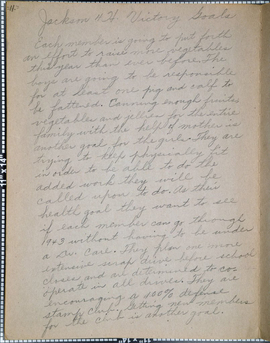 Jackson 4-H. Victory Goals
Each member is going to put forth
an effort to raise more vegetables
this year than ever before. The
boys are going to be responsible
for at least one pig and calf to
be fattened. Canning enough fruits
vegetables and jellies for the entire
family with the help of mother is
another goal for the girls. They are
trying to keep physically fit
in order to be able to do the
added work they will be
called upon to do. As their
health goal they want to see
if each member can go through
1943 without having to be under
a Dr. Care. They plan one more
extensive scrap drive before school
closes and are determined to coo
operate in all drives. They are
encouraging a 100% defense
stamp club. Getting new members
for the club is another goal.